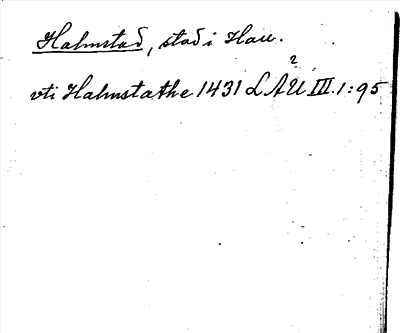 Halmstad, stad i Hall.
?
vti Halmstathe 1431 LAU III.1:95